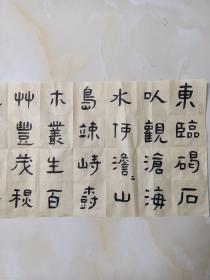 東臨碣石
以觀滄海
水何澹〻山
島竦峙樹
木叢生百
艸豐茂秋